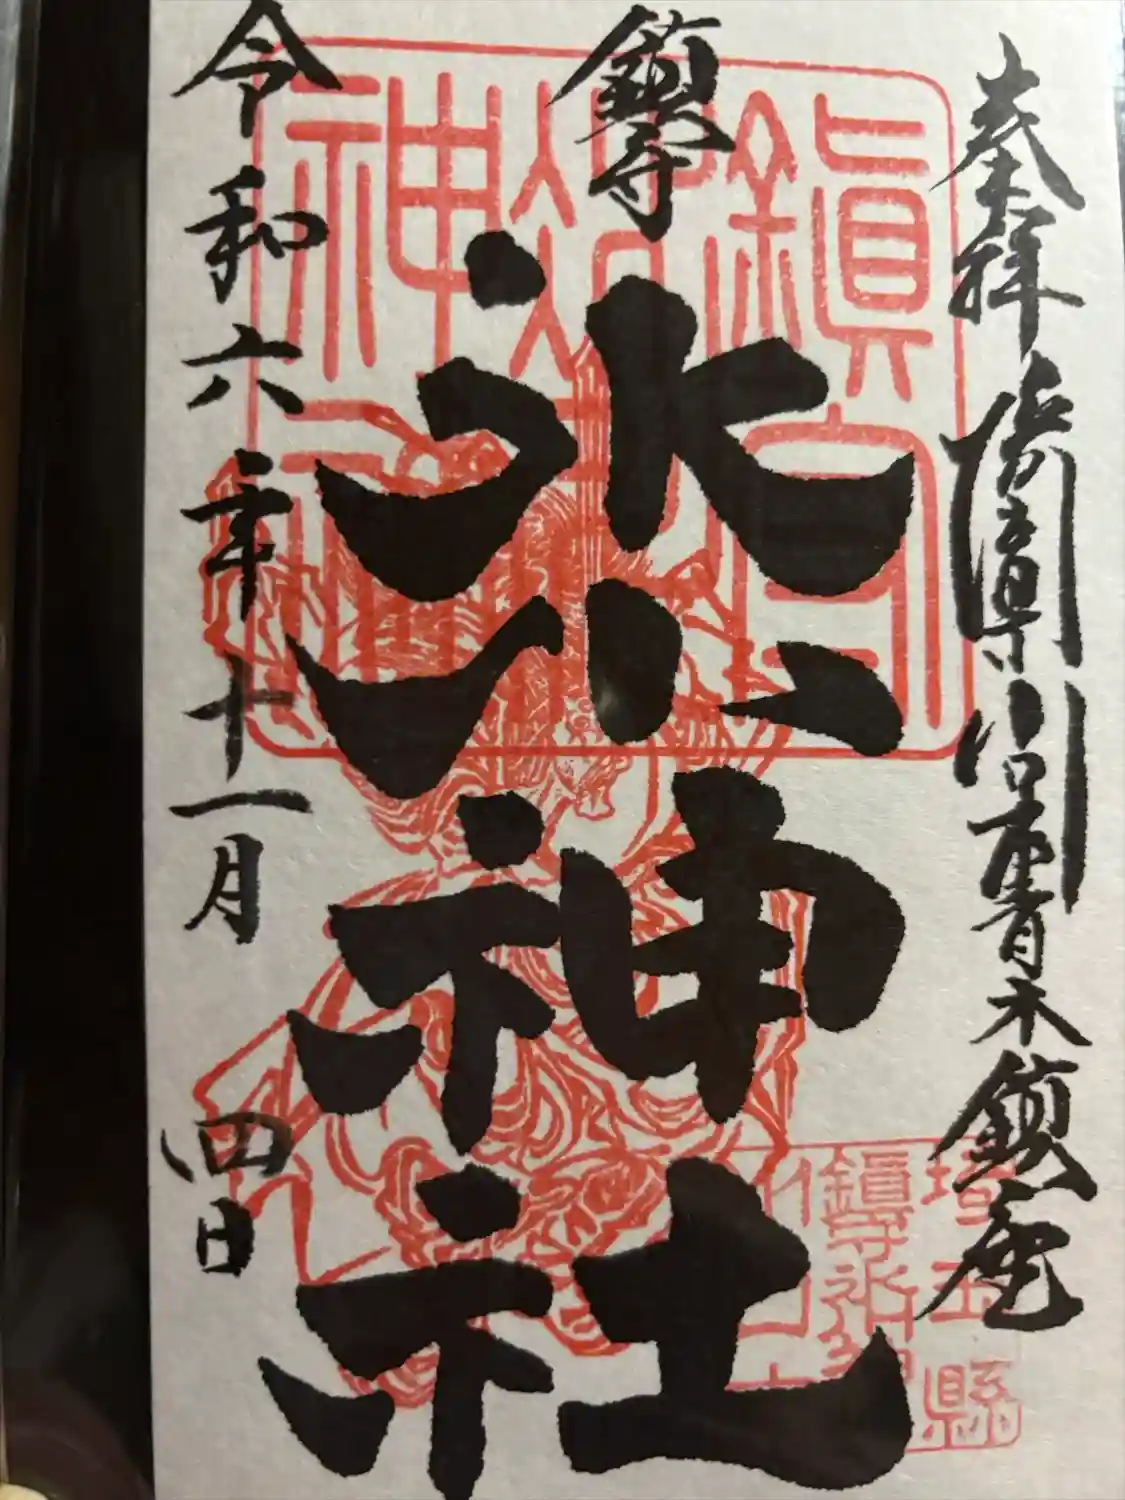 奉拝 埼玉県川口市青木鎮座
鎮守
氷川神社
令和六年十一月四日
鎮守
氷川
神社
埼玉縣
鎮守氷川